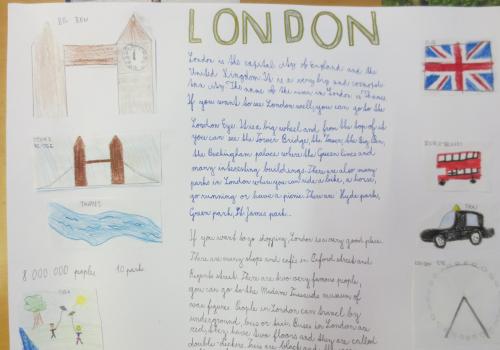 LONDON
BIG BEN
London is the capital city of England and the
United Kingdom. It is a very big and cosmopoli-
tan city. The name of the river in London is Thames.
If you want to see London well, you can go to the
London Eye. It is a big wheel and from the top of it
you can see the Tower Bridge, the Tower, the Big Ben,
the Buckingham palace where the Queen lives and
many interesting buildings. There are also many
parks in London where you can ride a bike, a horse,
go running or have a picnic. There are Hyde park,
Green park, St. James park...
If you want to go shopping, London is a very good place.
There are many shops and cafes in Oxford street and
Regents street. There are two very famous people,
you can go to the Madam Tussauds museum of
wax figures. People in London can travel by
underground, bus or taxi. Buses in London are
red, they have two floors and they are called
double-deckers. There are black
TOWER
BRIDGE
THAMES
8 000 000 peoples 10 parks
TAXI
LONDON EYE